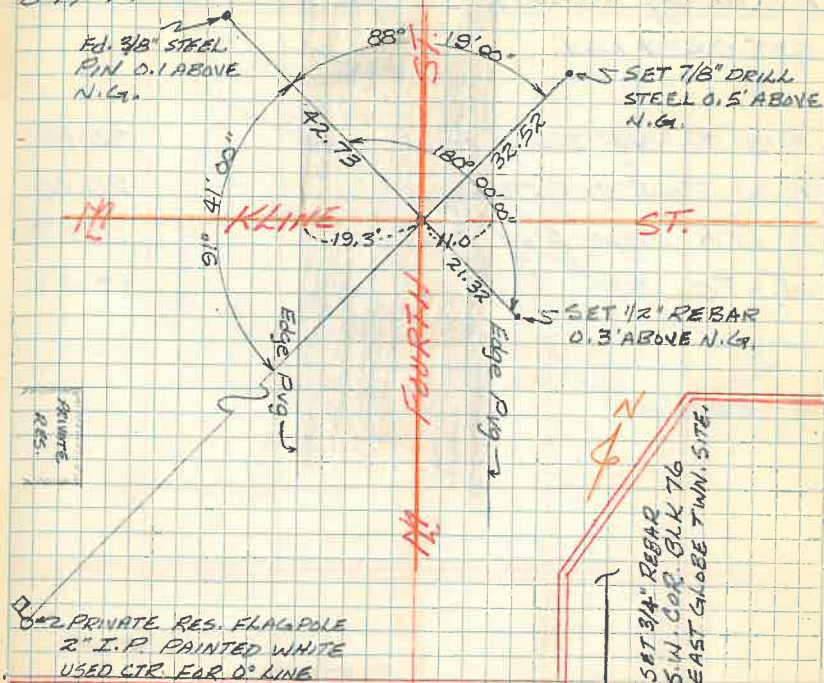 Fd. 3/8" STEEL
PIN 0.1 ABOVE
N.G.
88° 19' 00"
ST.
SET 7/8" DRILL
STEEL 0.5' ABOVE
N.G.
42.73
32.52
180° 00' 00"
91° 41' 00"
KLINE
ST.
19.3'
11.0
21.32
SET 1/2" REBAR
0.3' ABOVE N.G.
Edge Pvg
FOURTH
Edge Pvg
PRIVATE
RES.
N
SET 3/4" REBAR
S.W. COR. BLK 76
EAST GLOBE TWN. SITE.
PRIVATE RES. FLAGPOLE
2" I.P. PAINTED WHITE
USED CTR. FOR 0° LINE